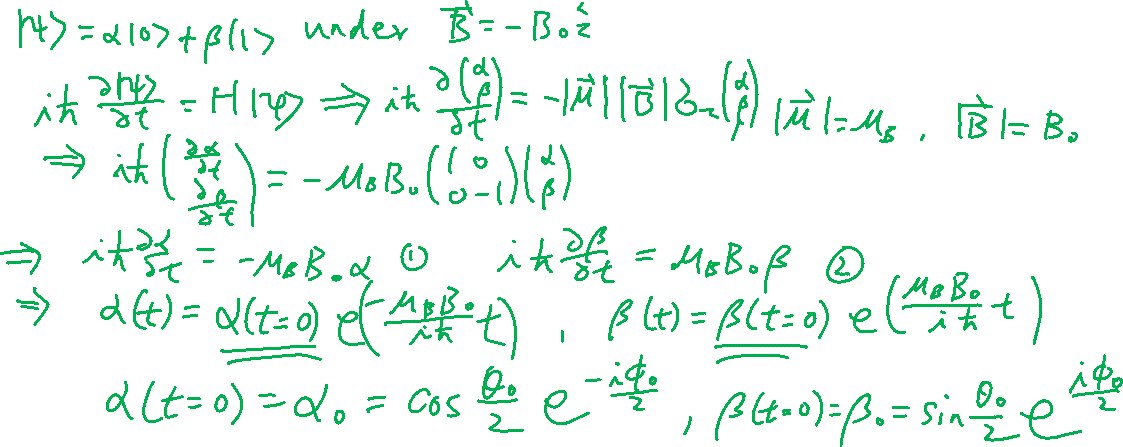 |ψ⟩ = α|0⟩ + β|1⟩ under B⃗ = -B₀ẑ
iħ ∂|ψ⟩/∂t = H|ψ⟩ ⟹ iħ ∂(α β)/∂t = -|μ⃗||B⃗|σ̂z (α β) |μ⃗| = μ_B , |B⃗| = B₀
⟹ iħ (∂α/∂t ∂β/∂t) = -μ_B B₀ (1 0 0 -1)(α β)
⟹ iħ ∂α/∂t = -μ_B B₀ α ① iħ ∂β/∂t = μ_B B₀ β ②
⟹ α(t) = α(t=0) e^(-μ_B B₀/iħ t) , β(t) = β(t=0) e^(μ_B B₀/iħ t)
α(t=0) = α₀ = cos θ₀/2 e^(-iϕ₀/2) , β(t=0) = β₀ = sin θ₀/2 e^(iϕ₀/2)